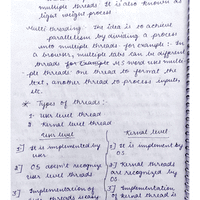 multiple threads. It is also known as
light weight process
Multi threading: the idea is to achieve
parallelism by dividing a process
into multiple threads for example:- In
a browser, multiple tabs can be different
threads for Example MS word use multi
ple threads one thread to format the
text, another thread to process inputs
etc.
* Types of threads:
1. user level thread
2. Kernel level thread
user level Kernel level
1] It is implemented by 1] It is implement by
user OS
2] OS doesn't recogniz 2] Kernel threads
user level threads are recognized by
OS
3] Implementation of 3] Implementation
user threads is of Kernel thread is